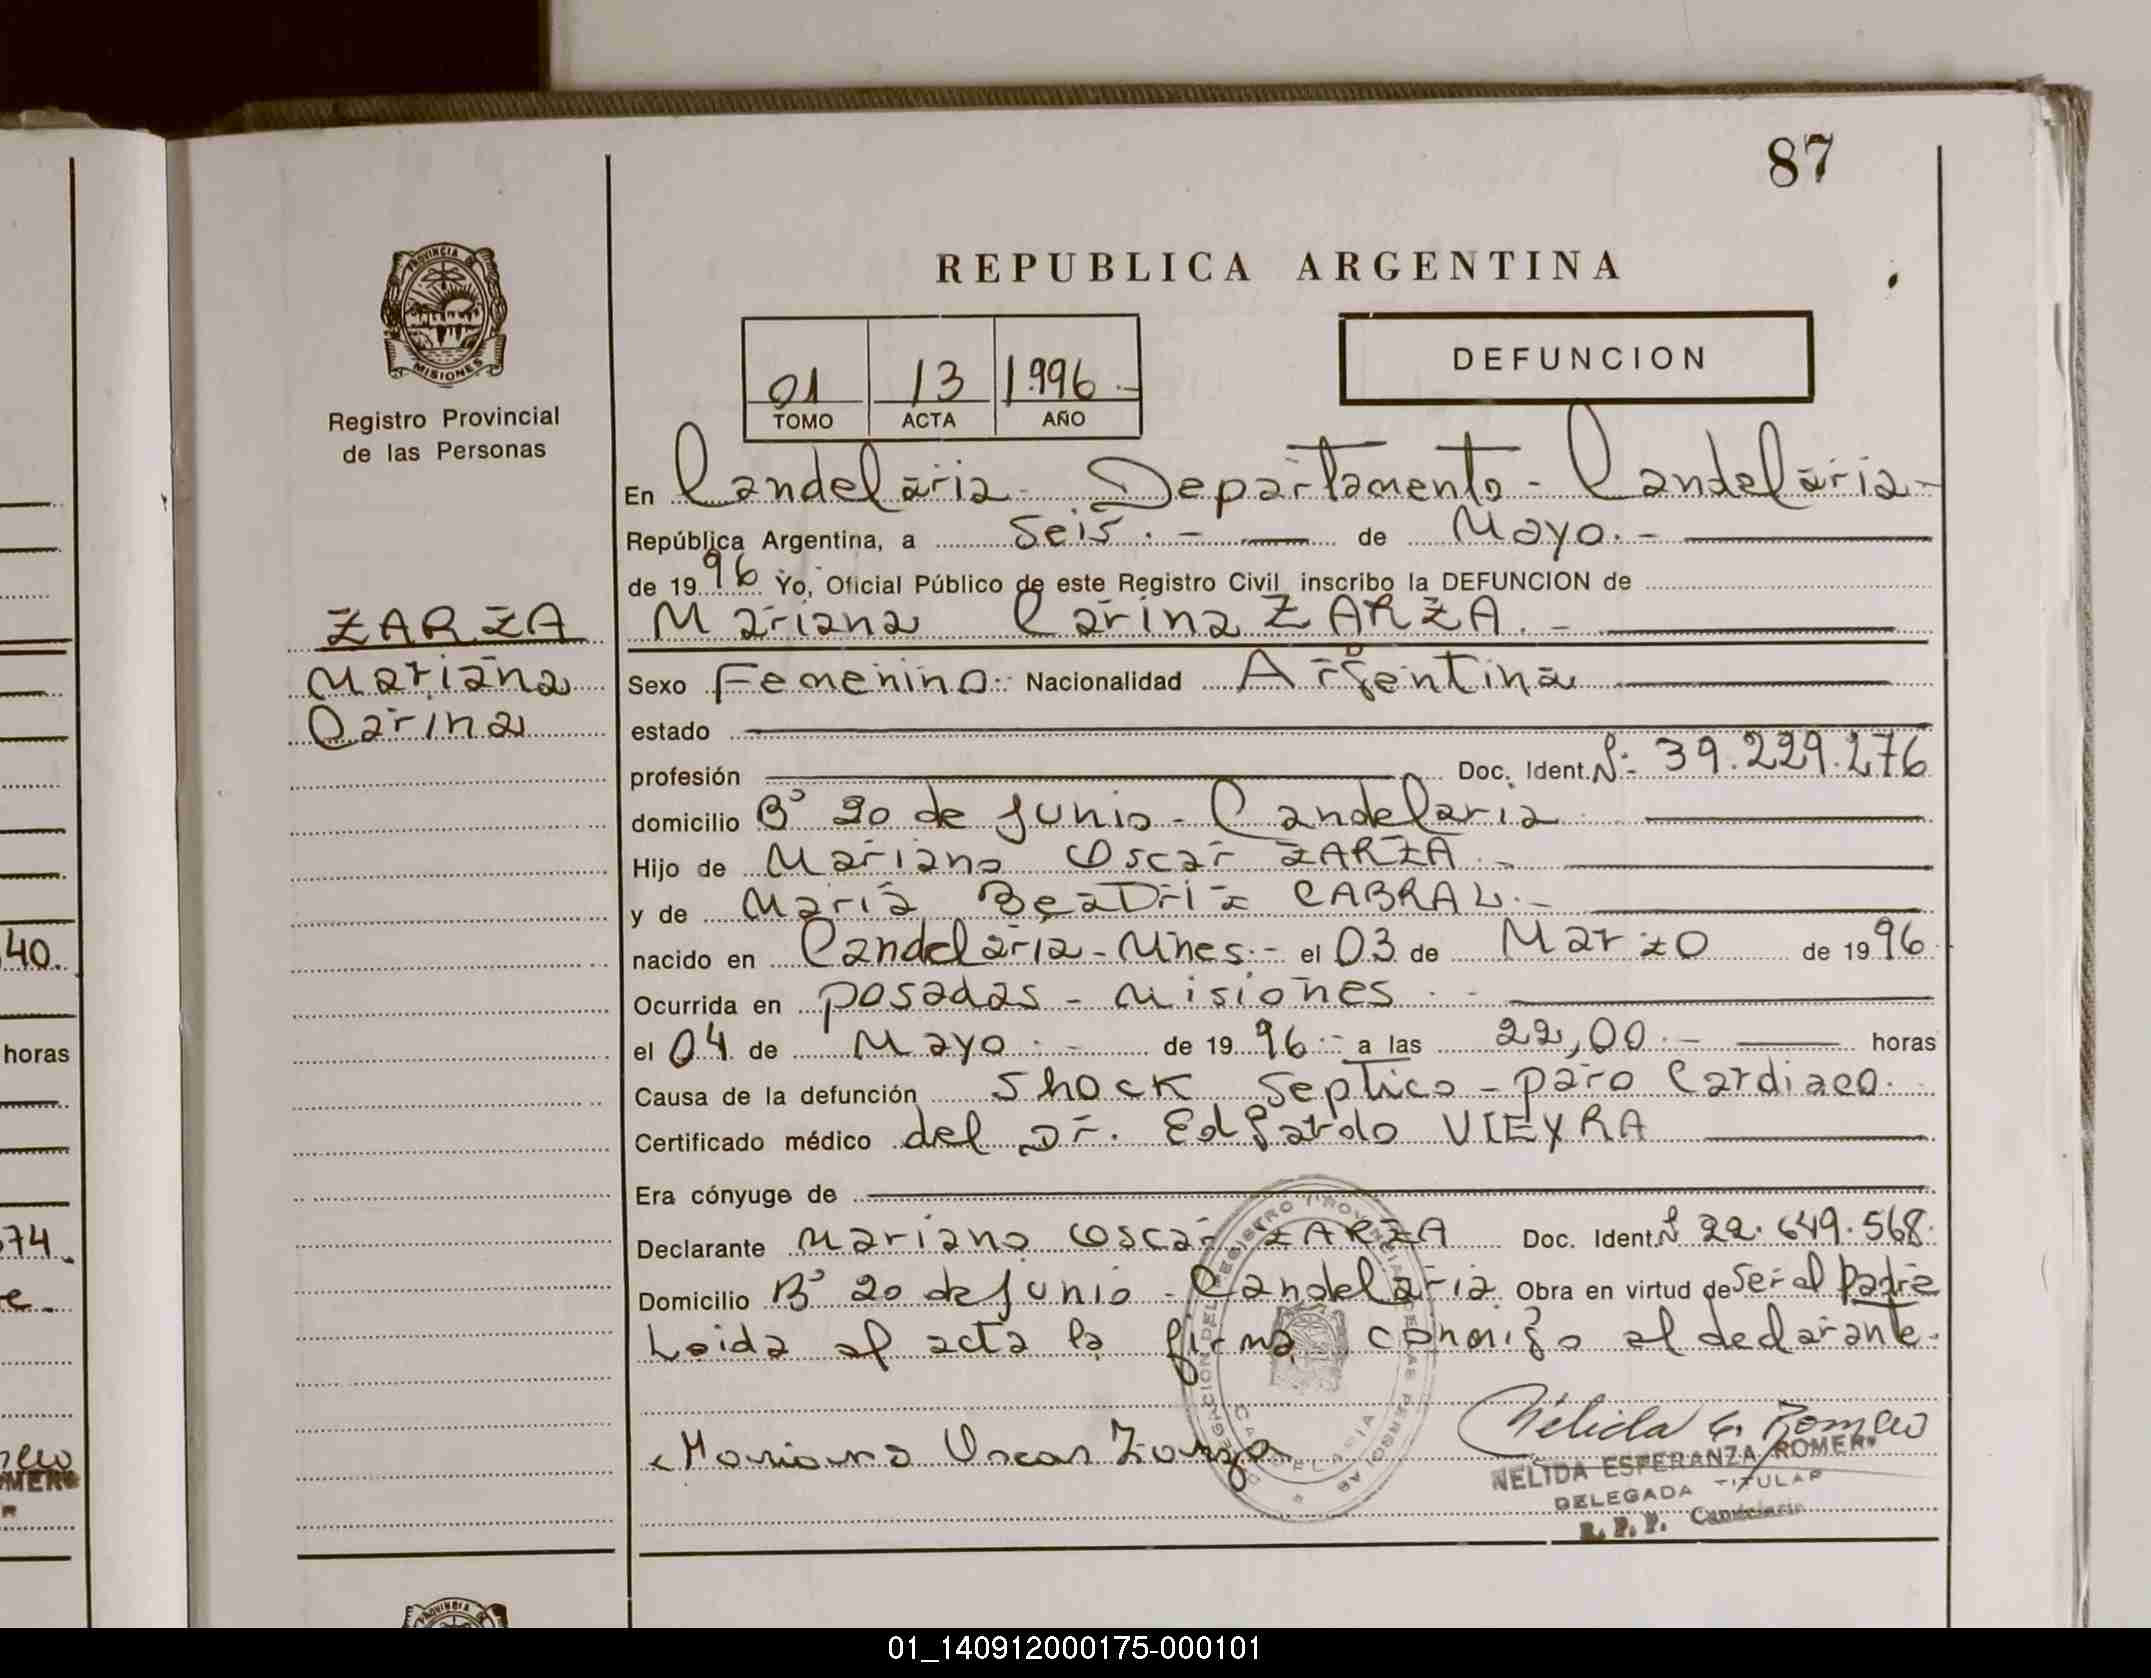 87
PROVINCIA DE
MISIONES
Registro Provincial
de las Personas
REPUBLICA ARGENTINA
01 13 1996.-
TOMO ACTA AÑO
DEFUNCION
En Candelaria - Departamento - Candelaria -
República Argentina, a Seis.- de Mayo.-
de 1996 Yo, Oficial Público de este Registro Civil inscribo la DEFUNCION de
ZARZA Mariana Carina ZARZA.-
Mariana Sexo Femenino. Nacionalidad Argentina
Carina estado
profesión Doc. Ident. Nº 39.229.276
domicilio Bº 20 de Junio - Candelaria
Hijo de Mariano Oscar ZARZA.-
y de María Beatriz CABRAL.-
40. nacido en Candelaria - Mnes.- el 03 de Marzo de 1996.
Ocurrida en posadas - Misiones.-
horas el 04 de Mayo.- de 1996.- a las 22,00.- horas
Causa de la defunción Shock Septico - paro Cardiaco.
Certificado médico del Dr. Edgardo VIEYRA
Era cónyuge de
74. Declarante Mariano Oscar ZARZA Doc. Ident. Nº 22.649.568.
Domicilio Bº 20 de Junio - Candelaria. Obra en virtud de ser el padre
Leida el acta la firma conmigo el declarante.
Mariano Oscar Zarza
Nélida E. Romero
NELIDA ESPERANZA ROMERO
DELEGADA TITULAR
R. P. P. Candelaria
DELEGACION DEL REGISTRO PROVINCIAL DE LAS PERSONAS
CANDELARIA
PROVINCIA
01_140912000175-000101